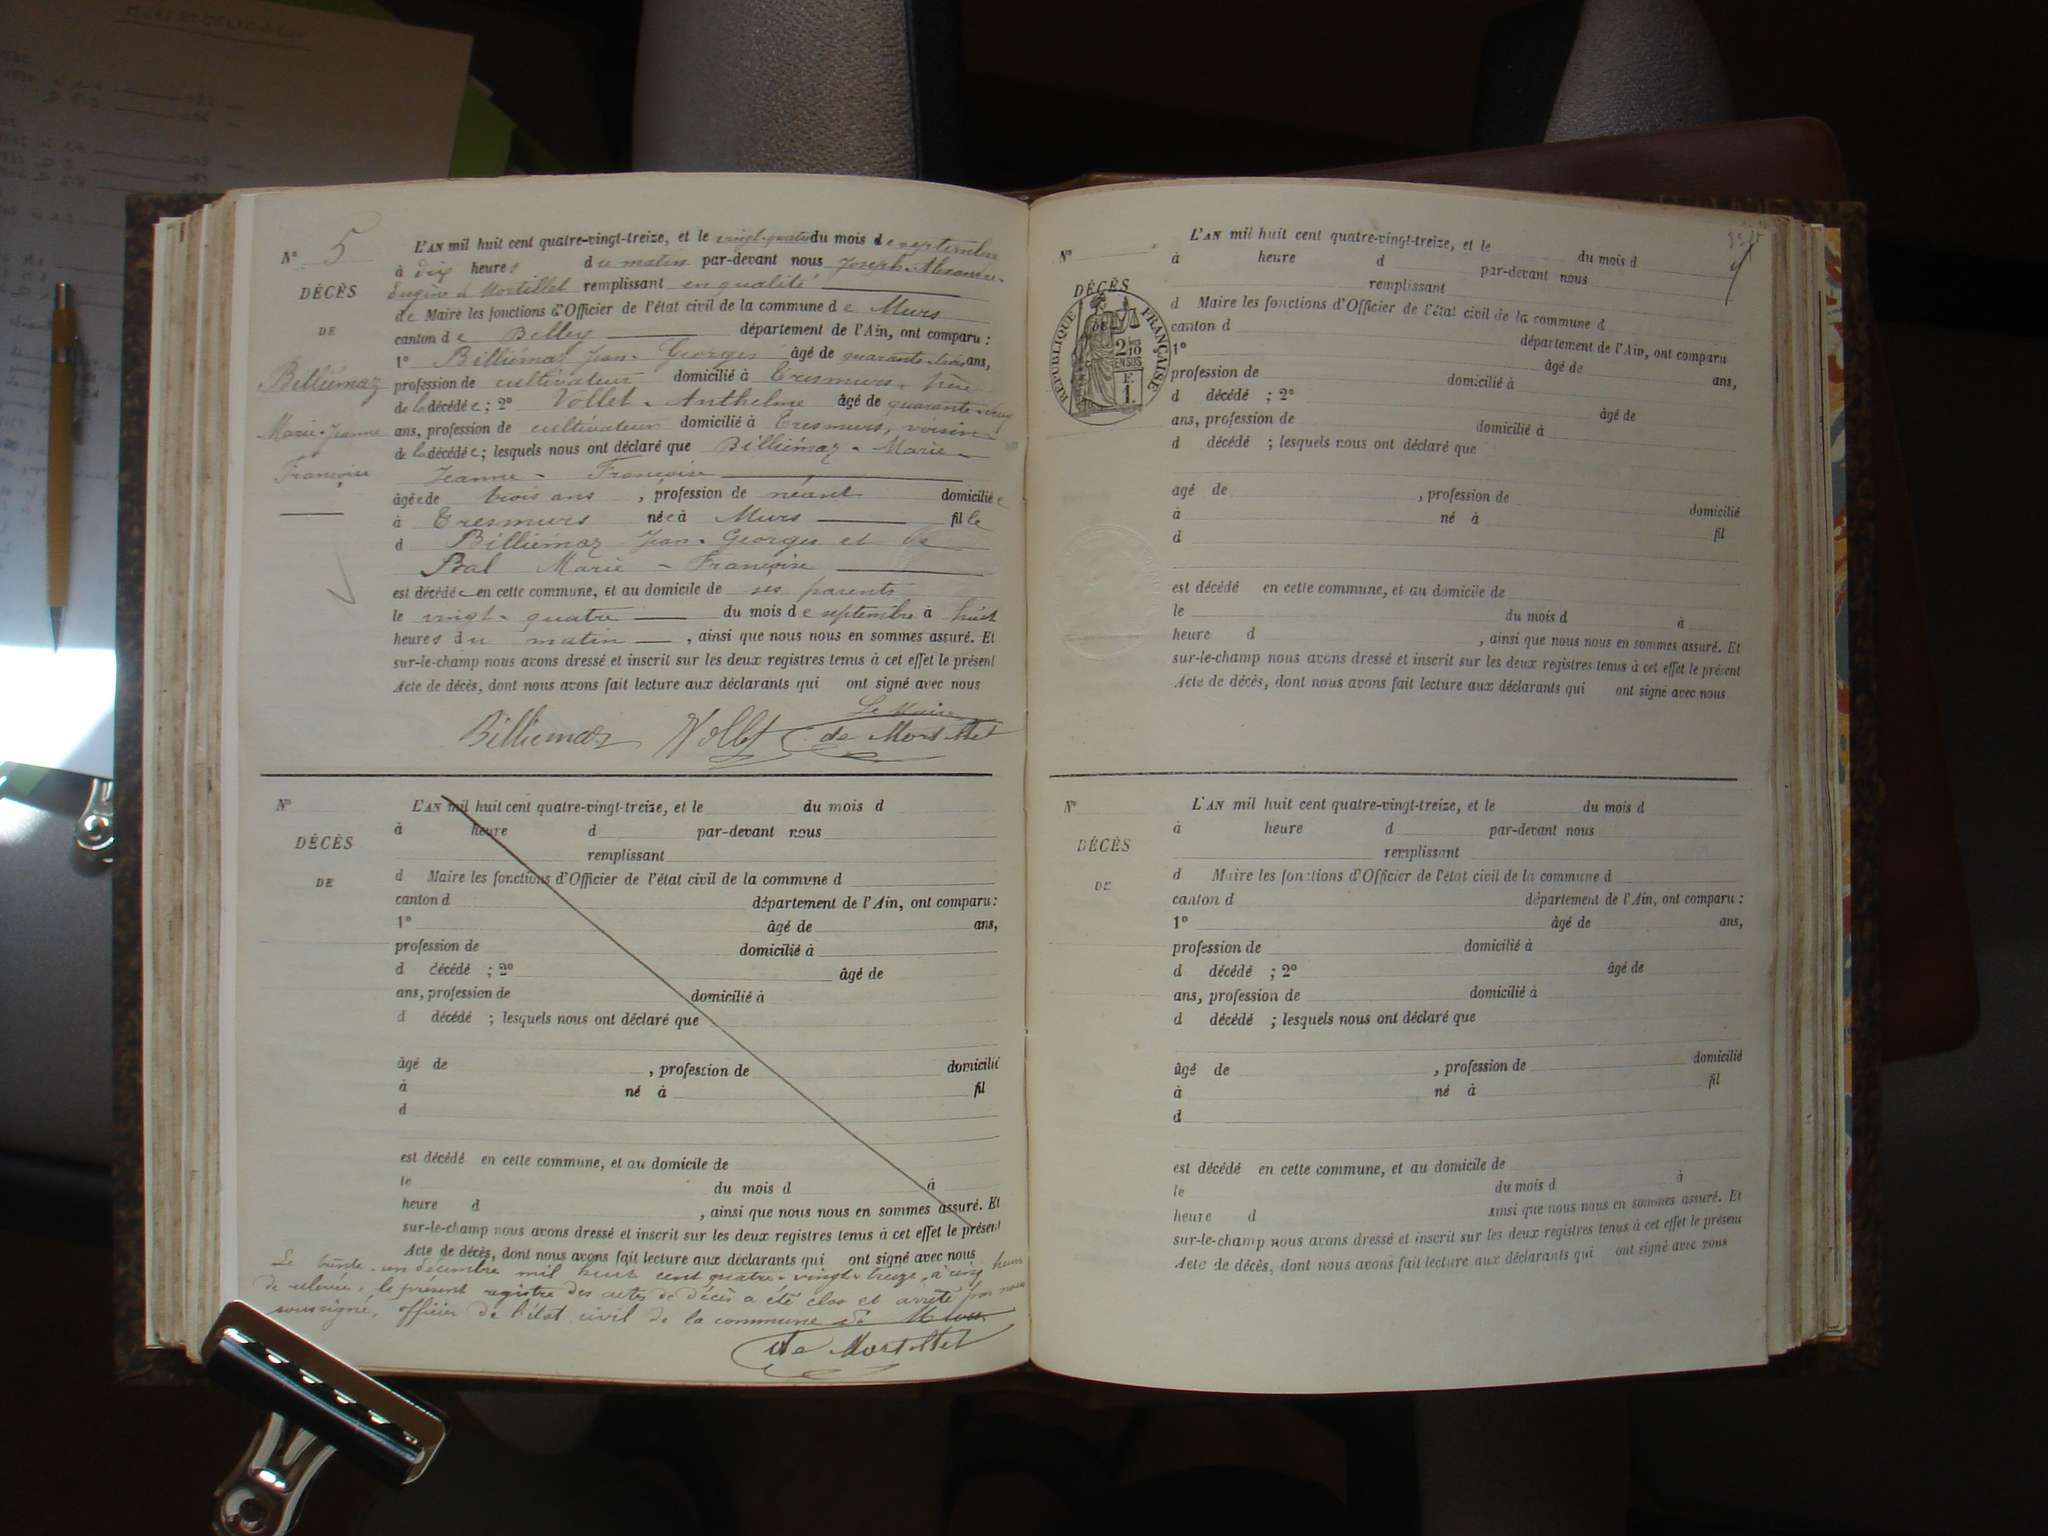 N° 5
DÉCÈS
DE
Billiémaz
Marie-Jeanne
Françoise
L'AN mil huit cent quatre-vingt-treize, et le vingt-quatre du mois de septembre
à dix heures du matin par-devant nous Joseph-Alexandre-
Eugène de Mortillet remplissant en qualité
de Maire les fonctions d'Officier de l'état civil de la commune de Murs
canton de Belley département de l'Ain, ont comparu :
1° Billiémaz Jean-Georges âgé de quarante-trois ans,
profession de cultivateur domicilié à Tresmurs, père
de la décédée ; 2° Vollet-Anthelme âgé de quarante-cinq
ans, profession de cultivateur domicilié à Tresmurs, voisin
de la décédée ; lesquels nous ont déclaré que Billiémaz-Marie-
Jeanne-Françoise
âgée de trois ans , profession de néant domiciliée
à Tresmurs née à Murs fille
d Billiémaz Jean-Georges et de
Bal Marie-Françoise
est décédée en cette commune, et au domicile de ses parents
le vingt-quatre du mois de septembre à huit
heures du matin , ainsi que nous nous en sommes assuré. Et
sur-le-champ nous avons dressé et inscrit sur les deux registres tenus à cet effet le présent
Acte de décès, dont nous avons fait lecture aux déclarants qui ont signé avec nous
Le Maire
Billiemaz Vollet de Mortillet
N°
DÉCÈS
DE
L'AN mil huit cent quatre-vingt-treize, et le du mois d
à heure d par-devant nous
remplissant
d Maire les fonctions d'Officier de l'état civil de la commune d
canton d département de l'Ain, ont comparu :
1° âgé de ans,
profession de domicilié à
d décédé ; 2° âgé de
ans, profession de domicilié à
d décédé ; lesquels nous ont déclaré que
âgé de , profession de domicilié
à né à fil
d
est décédé en cette commune, et au domicile de
le du mois d à
heure d , ainsi que nous nous en sommes assuré. Et
sur-le-champ nous avons dressé et inscrit sur les deux registres tenus à cet effet le présent
Acte de décès, dont nous avons fait lecture aux déclarants qui ont signé avec nous
Le trente-un décembre mil huit cent quatre-vingt-treize, à cinq heures
de relevée, le présent registre des actes de décès a été clos et arrêté par nous
soussigné, officier de l'état civil de la commune de Murs
de Mortillet
N°
DÉCÈS
DE
RÉPUBLIQUE FRANÇAISE
2/10
EN SUS
F.
1.
L'AN mil huit cent quatre-vingt-treize, et le du mois d
à heure d par-devant nous
remplissant
d Maire les fonctions d'Officier de l'état civil de la commune d
canton d département de l'Ain, ont comparu
1° âgé de ans,
profession de domicilié à
d décédé ; 2° âgé de
ans, profession de domicilié à
d décédé ; lesquels nous ont déclaré que
âgé de , profession de domicilié
à né à fil
d
est décédé en cette commune, et au domicile de
le du mois d à
heure d , ainsi que nous nous en sommes assuré. Et
sur-le-champ nous avons dressé et inscrit sur les deux registres tenus à cet effet le présent
Acte de décès, dont nous avons fait lecture aux déclarants qui ont signé avec nous
N°
DÉCÈS
DE
L'AN mil huit cent quatre-vingt-treize, et le du mois d
à heure d par-devant nous
remplissant
d Maire les fonctions d'Officier de l'état civil de la commune d
canton d département de l'Ain, ont comparu :
1° âgé de ans,
profession de domicilié à
d décédé ; 2° âgé de
ans, profession de domicilié à
d décédé ; lesquels nous ont déclaré que
âgé de , profession de domicilié
à né à fil
d
est décédé en cette commune, et au domicile de
le du mois d à
heure d ainsi que nous nous en sommes assuré. Et
sur-le-champ nous avons dressé et inscrit sur les deux registres tenus à cet effet le présent
Acte de décès, dont nous avons fait lecture aux déclarants qui ont signé avec nous